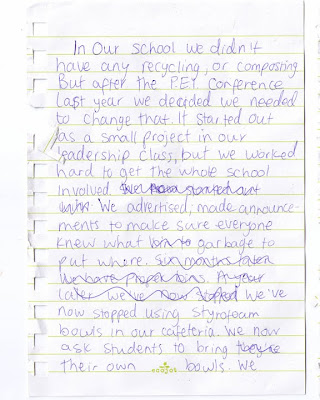 In Our school we didn't
have any recycling, or composting
But after the P.E.T. Conference
last year we decided we needed
to change that. It started out
as a small project in our
leadership class, but we worked
hard to get the whole school
involved. We have started out
We advertised, made announce-
ments to make sure everyone
knew what garbage to
put where. Six months later
we have proper bins. A year
later we've now stopped We've
now stopped using styrofoam
bowls in our cafeteria. We now
ask students to bring they're
their own bowls. We
ecojot